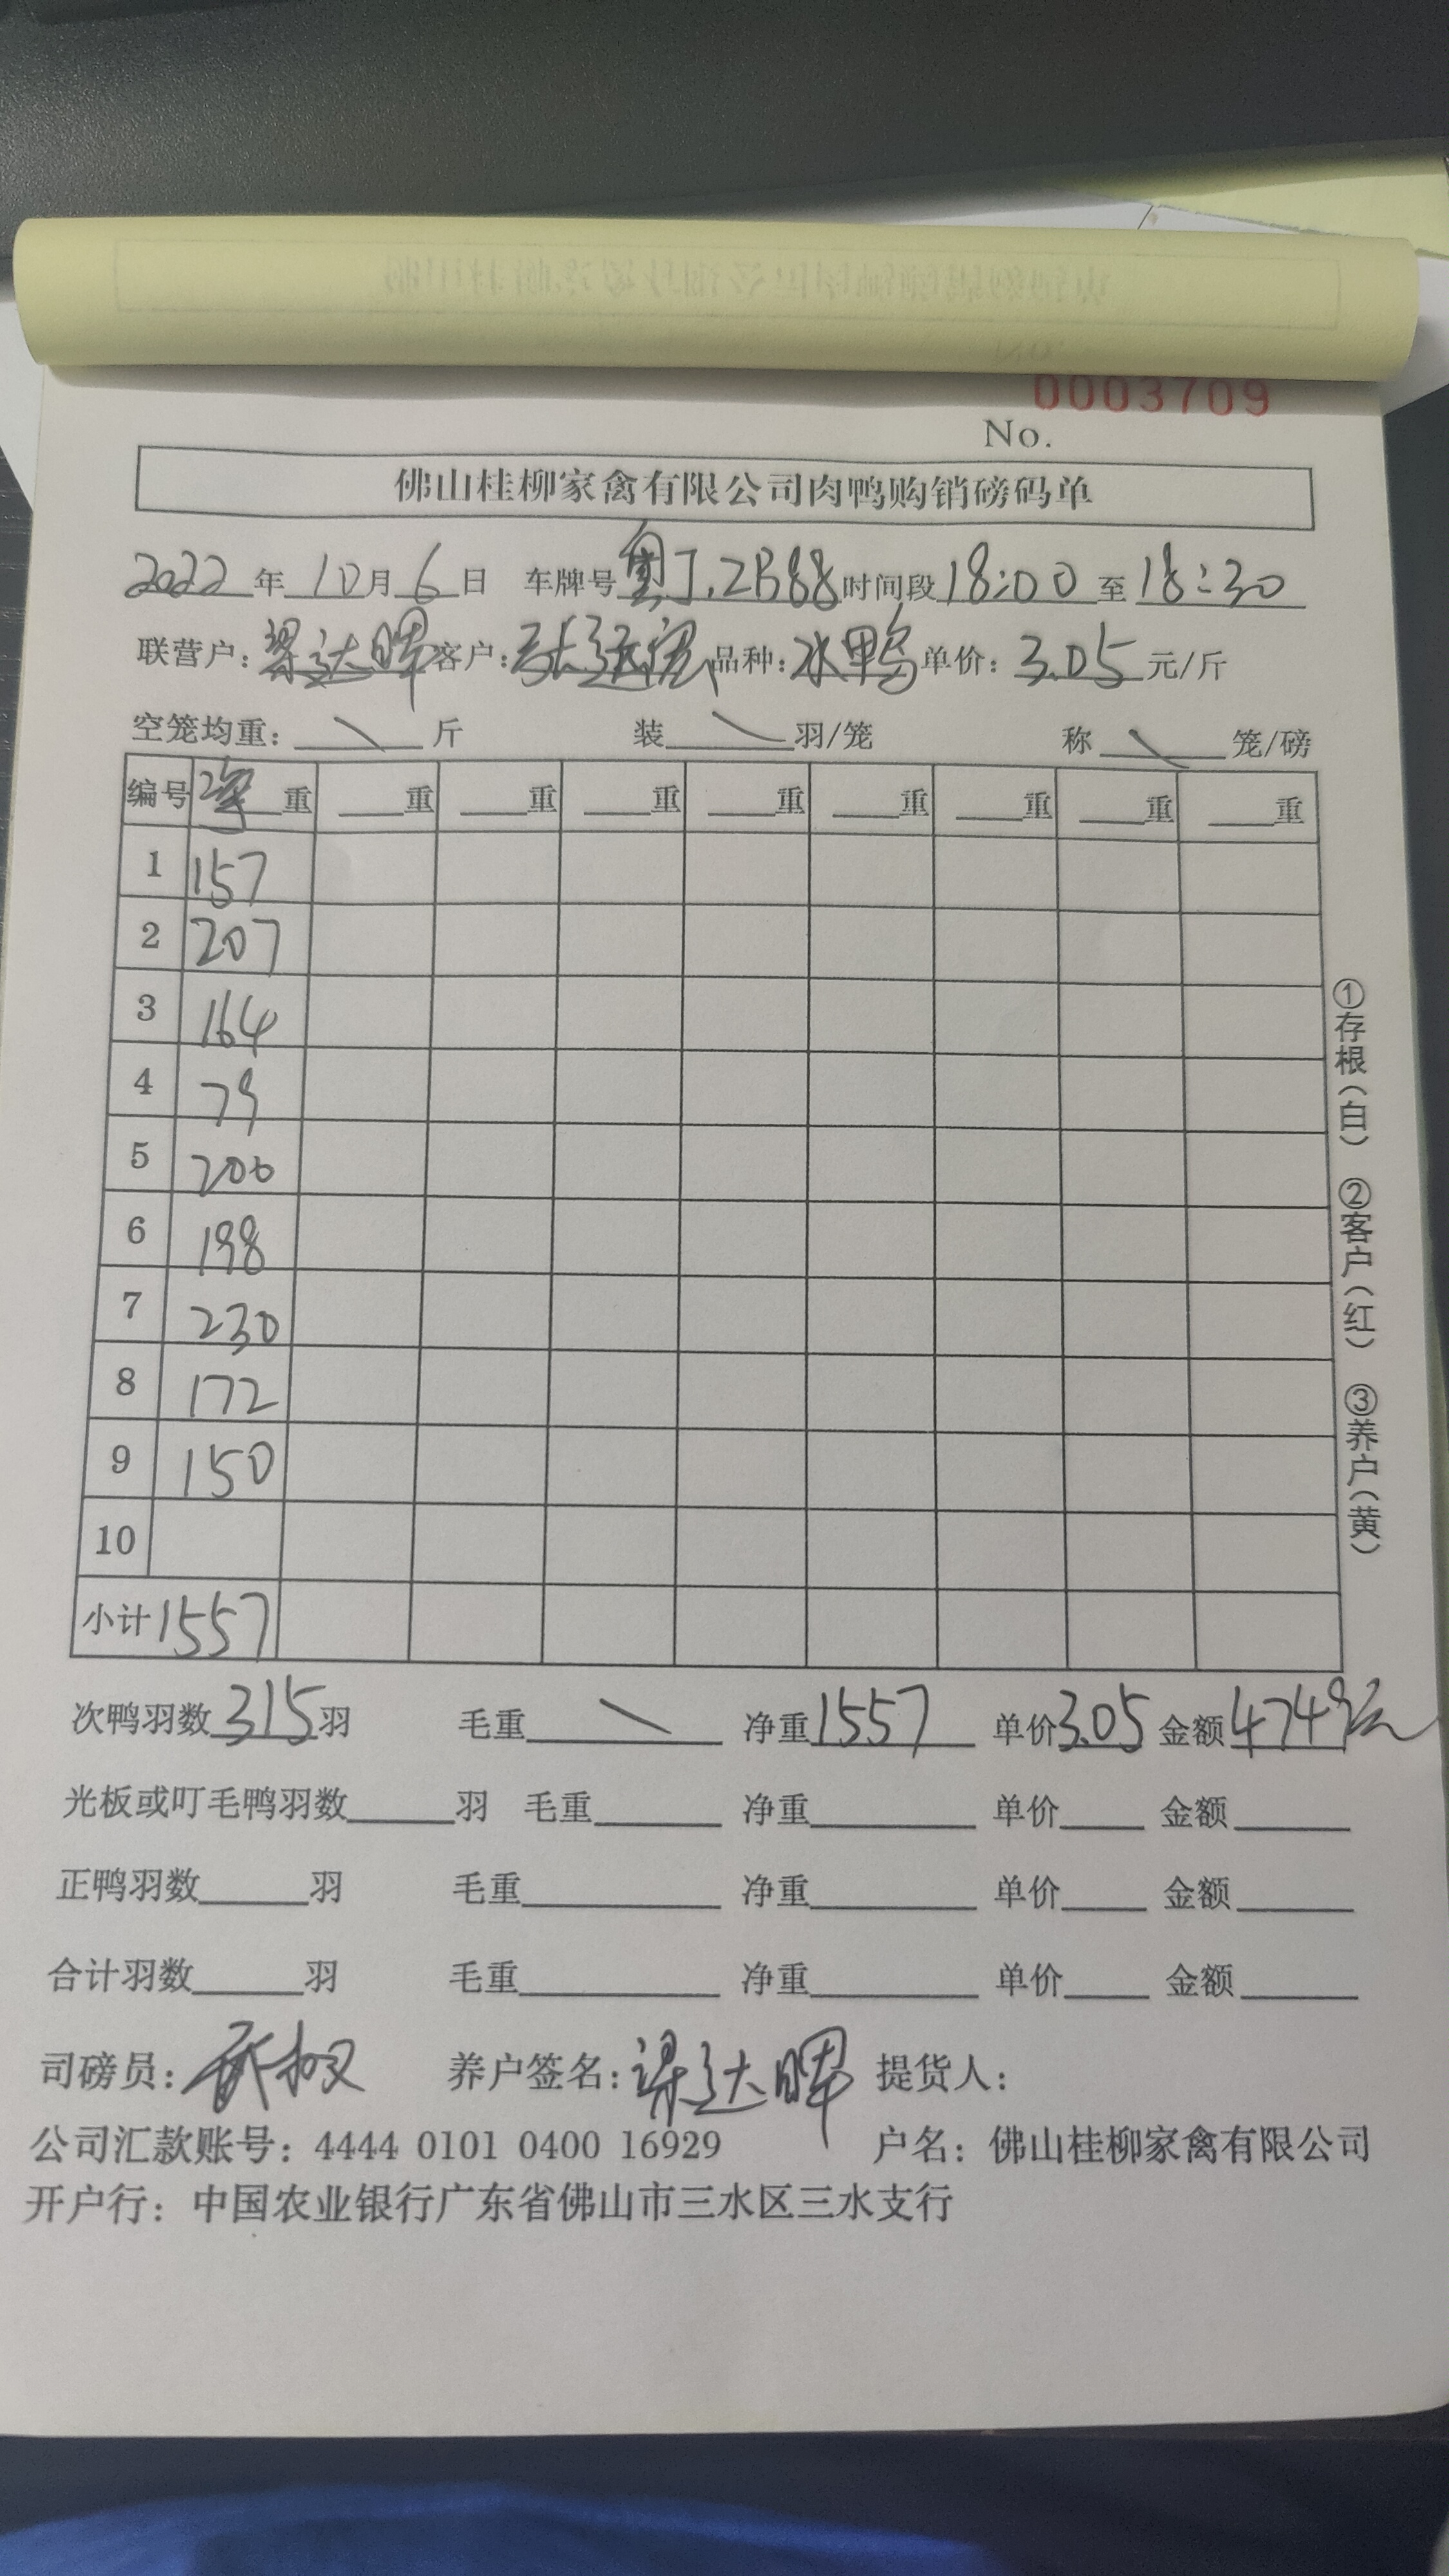 0003709
No.
佛山桂柳家禽有限公司肉鸭购销磅码单
2022年10月6日 车牌号粤J.2B88时间段18:00至18:30
联营户:梁达晖客户:张远宏品种:水鸭单价:3.05元/斤
空笼均重:\斤 装\羽/笼 称\笼/磅
编号 净重 重 重 重 重 重 重 重 重
1 157
2 207
3 164
4 79
5 200
6 198
7 230
8 172
9 150
10
小计 1557
次鸭羽数315羽 毛重\ 净重1557 单价3.05 金额4749元
光板或叮毛鸭羽数 羽 毛重 净重 单价 金额
正鸭羽数 羽 毛重 净重 单价 金额
合计羽数 羽 毛重 净重 单价 金额
司磅员: 养户签名:梁达晖 提货人:
公司汇款账号:4444 0101 0400 16929 户名:佛山桂柳家禽有限公司
开户行:中国农业银行广东省佛山市三水区三水支行
①存根(白) ②客户(红) ③养户(黄)